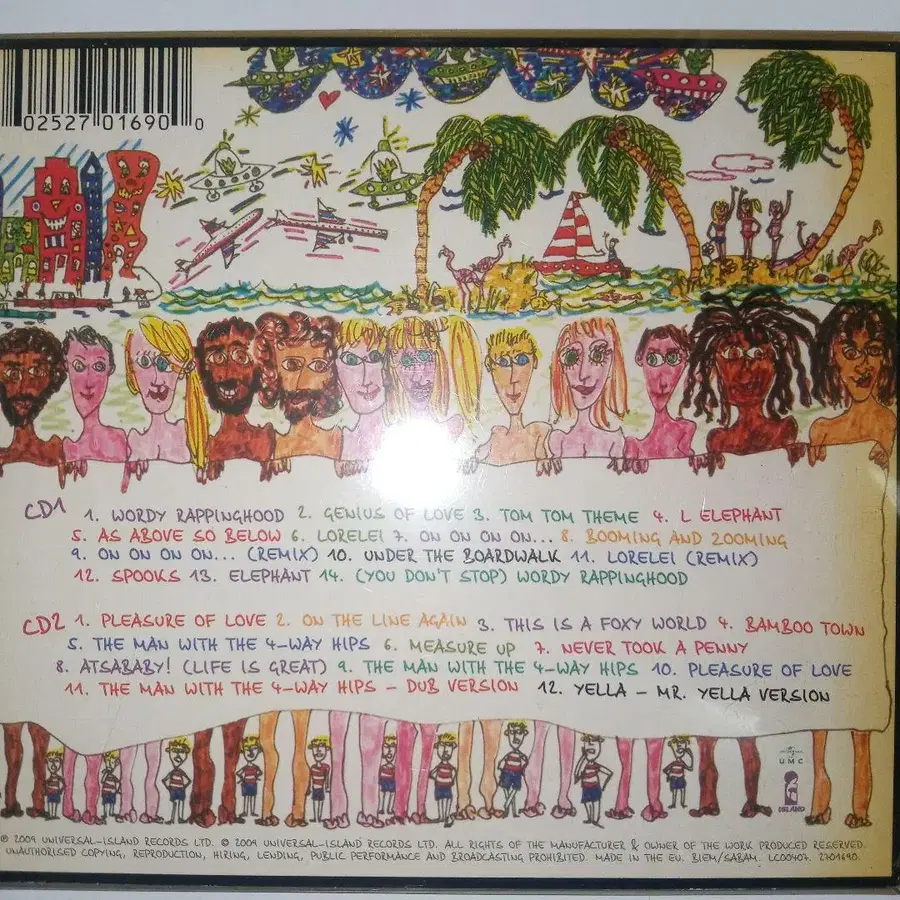 02527 01690 0
CD1 1. WORDY RAPPINGHOOD 2. GENIUS OF LOVE 3. TOM TOM THEME 4. L ELEPHANT
5. AS ABOVE SO BELOW 6. LORELEI 7. ON ON ON ON... 8. BOOMING AND ZOOMING
9. ON ON ON ON... (REMIX) 10. UNDER THE BOARDWALK 11. LORELEI (REMIX)
12. SPOOKS 13. ELEPHANT 14. (YOU DON'T STOP) WORDY RAPPINGHOOD
CD2 1. PLEASURE OF LOVE 2. ON THE LINE AGAIN 3. THIS IS A FOXY WORLD 4. BAMBOO TOWN
5. THE MAN WITH THE 4-WAY HIPS 6. MEASURE UP 7. NEVER TOOK A PENNY
8. ATSABABY! (LIFE IS GREAT) 9. THE MAN WITH THE 4-WAY HIPS 10. PLEASURE OF LOVE
11. THE MAN WITH THE 4-WAY HIPS - DUB VERSION 12. YELLA - MR. YELLA VERSION
UMC
ISLAND
℗ 2009 UNIVERSAL-ISLAND RECORDS LTD. © 2009 UNIVERSAL-ISLAND RECORDS LTD. ALL RIGHTS OF THE MANUFACTURER & OWNER OF THE WORK PRODUCED RESERVED.
UNAUTHORISED COPYING, REPRODUCTION, HIRING, LENDING, PUBLIC PERFORMANCE AND BROADCASTING PROHIBITED. MADE IN THE EU. BIEM/SABAM. LC00407. 2701690.